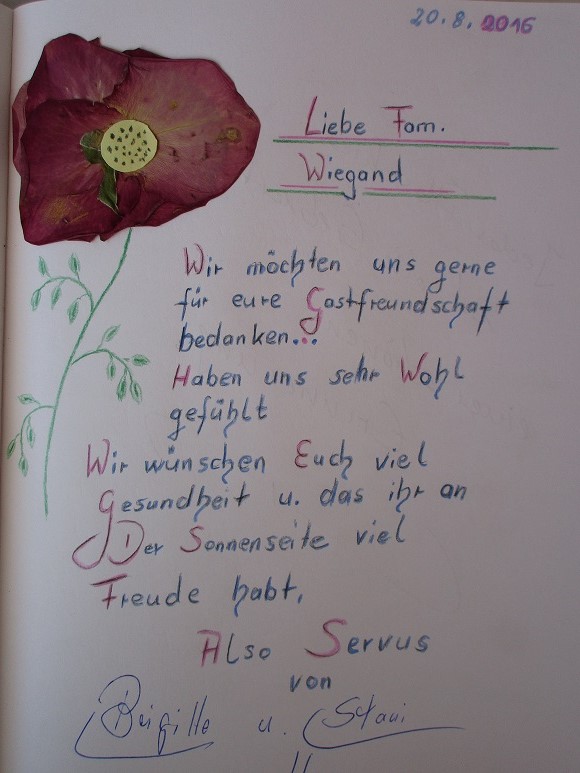 20.8.2016
Liebe Fam.
Wiegand
Wir möchten uns gerne
für eure Gastfreundschaft
bedanken...
Haben uns sehr Wohl
gefühlt
Wir wünschen Euch viel
Gesundheit u. das ihr an
Der Sonnenseite viel
Freude habt,
Also Servus
von
Brigitte u.